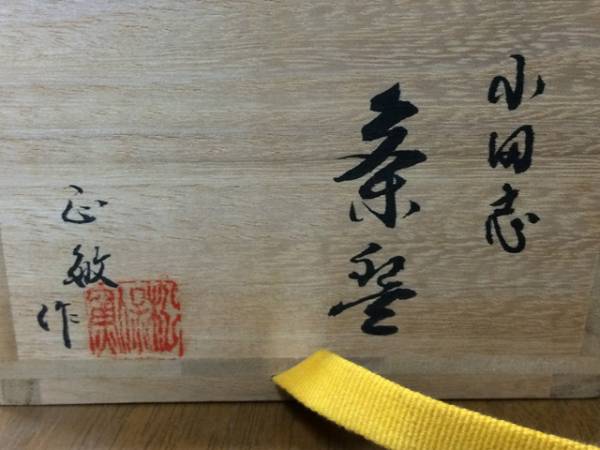 小田志
茶盌
正敏
作